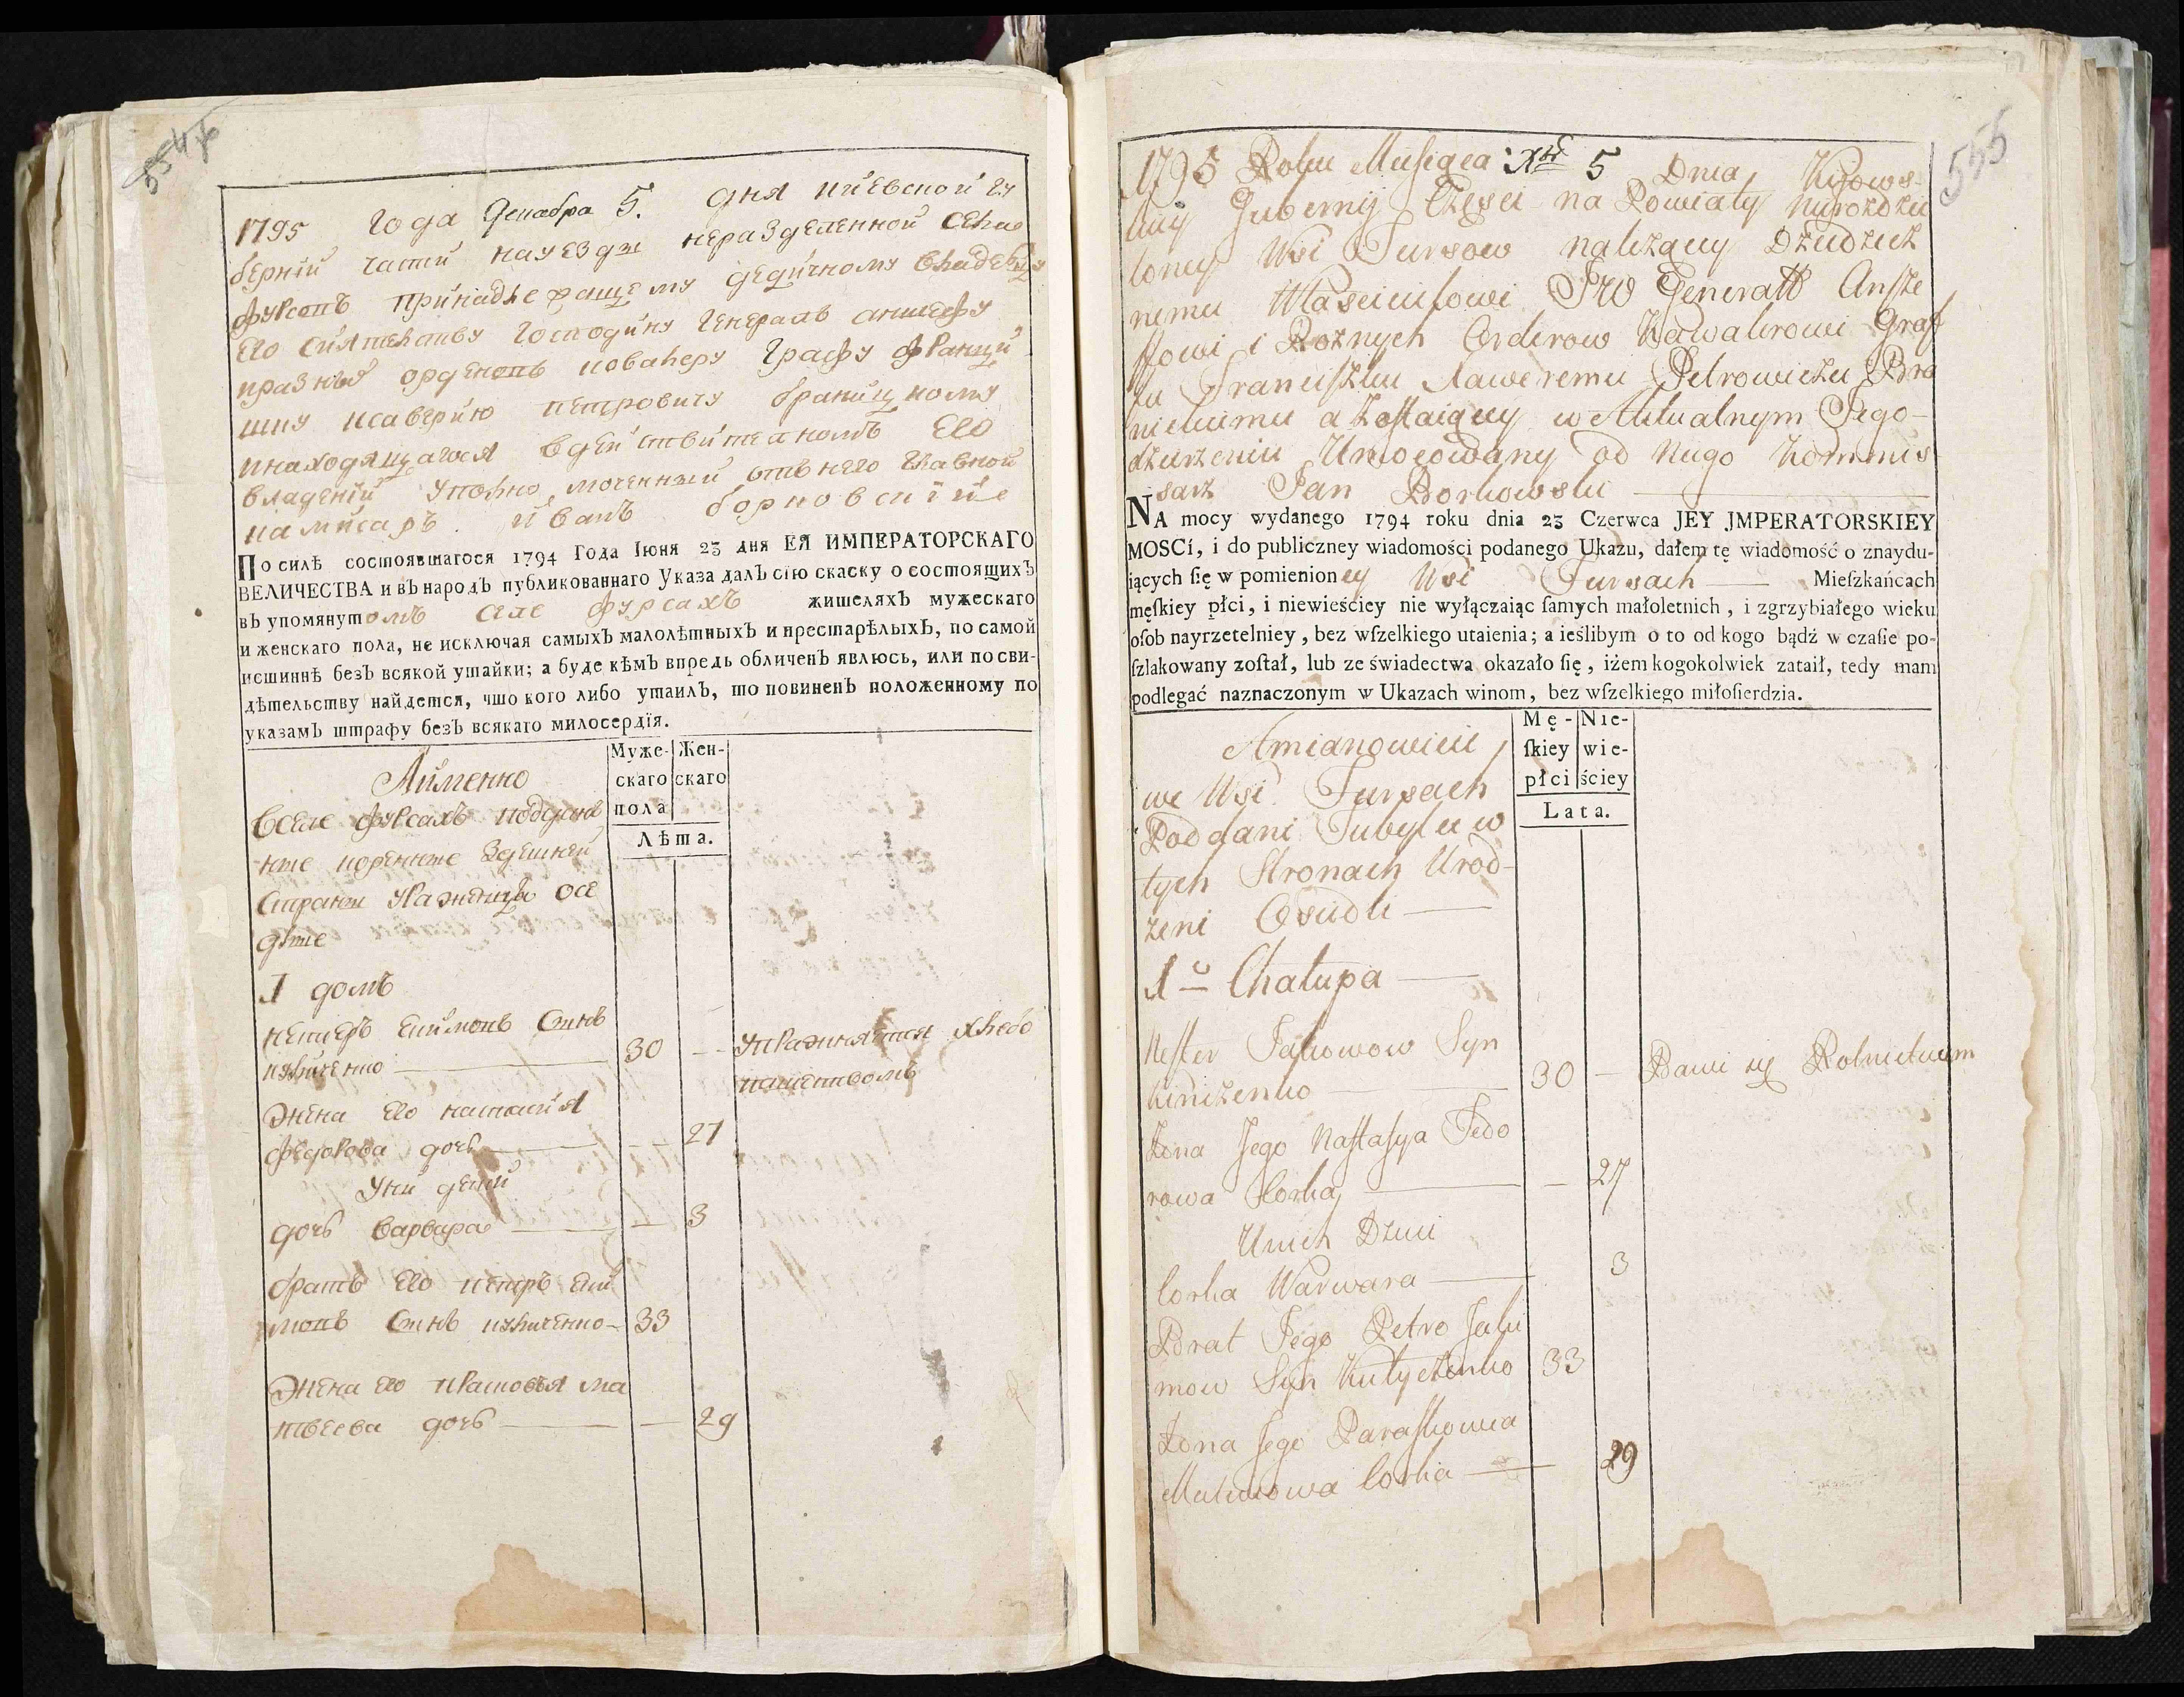 554 об
1795 Года Декабра 5. дня киевской гу
берний части науезди неразделенной села
Фурсовъ принадлежащему дедичному владельцу
Его сиятелству Господину Генералъ аншефу
празныхъ орденовъ коваллеру Графу Франци
шку ксаверию Петровичу браницкому
инаходящагося вдействителномъ Его
владении уполно моченный отъ него главной
камисаръ Иванъ борковский
По силѣ состоявшагося 1794 Года Іюня 23 дня ЕЯ ИМПЕРАТОРСКАГО
ВЕЛИЧЕСТВА и въ народъ публикованнаго Указа далъ сію скаску о состоящихъ
въ упомянутомъ селе Фурсахъ жишеляхъ мужескаго
и женскаго пола, не исключая самыхъ малолѣтныхъ и престарѣлыхъ, по самой
истиннѣ безъ всякой утайки; а буде кѣмъ впредь обличенъ явлюсь, или по сви-
дѣтельству найдется, что кого либо утаилъ, то повиненъ положенному по
указамъ штрафу безъ всякаго милосердія.
Айменно
Муже- Жен-
скаго скаго
пола
Лѣта.
Вселе Фурсахъ подданн
ые коренные Здешней
Стране Уражденцы осе
длые
1 домъ
нестеръ екимовъ Сынъ
куличенко 30 — упражняется хлебо
пашествомъ
Жена Его настасия
Федорова дочь — 27
Уних дети
дочь варвара — 3
братъ Его петръ еки
мовъ Сынъ куличенко 33
Жена Его прасковя ма
твеева дочь — 29
555
1795 Roku Miesiąca Xbr 5 Dnia Kijows-
kiey Gubernij Częsci na Powiaty nierozdzie
loney Wsi Fursow należący Dziedzicz
nemu Właścicielowi JW Generałł Ansze
ffowi i Rożnych Orderow Kawalerowi Graf
fu Franciszku Xaweremu Petrowiczu Bra
nickiemu a Zostaiący w Aktualnym Jego
dzierżeniu Umocowany od Niego Kommis
sarz Jan Borkowski —
NA mocy wydanego 1794 roku dnia 23 Czerwca JEY JMPERATORSKIEY
MOSCi, i do publiczney wiadomości podanego Ukazu, dałem tę wiadomość o znaydu-
iących ſię w pomienioney Wsi Fursach — Mieſzkańcach
męſkiey płci, i niewieściey nie wyłączaiąc ſamych małoletnich, i zgrzybiałego wieku
oſob nayrzetelniey, bez wſzelkiego utaienia; a ieślibym o to od kogo bądź w czaſie po-
ſzlakowany zoſtał, lub ze świadectwa okazało ſię, iżem kogokolwiek zataił, tedy mam
podlegać naznaczonym w Ukazach winom, bez wſzelkiego miłoſierdzia.
Amianowicie
Mę- Nie-
ſkiey wie-
płci ściey
Lata.
we Wsi Fursach
Poddani Tubylcy w
tych Stronach Urod-
zeni Osiedli —
1a Chałupa —
Nester Jakowow Syn
30 — Bawi się Rolnictwem
Żona Jego Nastasya Fedo
rowa Corka — 27
Unich Dzieci
Corka Warwara — 3
Brat Jego Petro Jaki
mow Syn 33
Żona Jego Paraskowia
Matwiowa Corka — 29